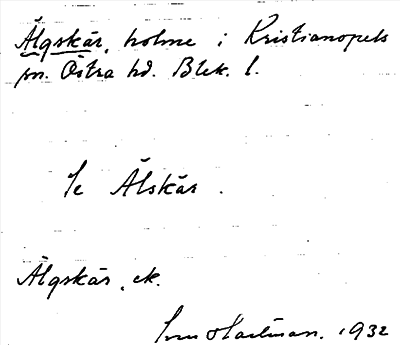 Älgskär, holme i Kristianopels
sn. Östra hd. Blek. l.
Se Älskär.
Älgskär, ek.
Hartman. 1932